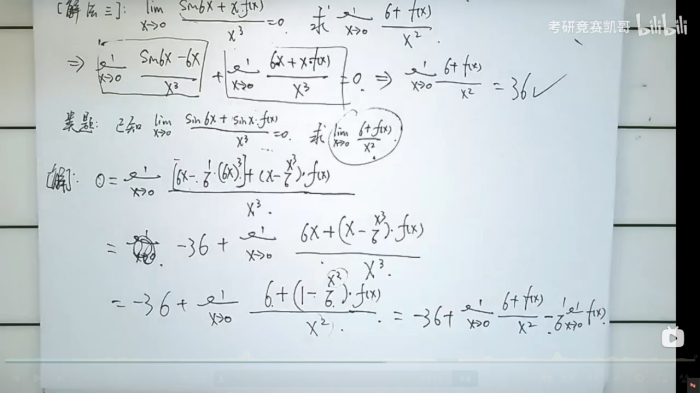 考研竞赛凯哥 bilibili
[解法三]: lim x→0 (sin6x + x·f(x))/x³ = 0. 求 lim x→0 (6+f(x))/x².
⇒ lim x→0 (sin6x-6x)/x³ + lim x→0 (6x+x·f(x))/x³ = 0. ⇒ lim x→0 (6+f(x))/x² = 36 ✓
类题: 已知 lim x→0 (sin6x + sinx·f(x))/x³ = 0. 求 lim x→0 (6+f(x))/x².
[解]: 0 = lim x→0 ([6x - 1/6·(6x)³] + (x - x³/6)·f(x))/x³.
= -36 + lim x→0 (6x+(x - x³/6)·f(x))/x³.
= -36 + lim x→0 (6+(1 - x²/6)·f(x))/x². = -36+ lim x→0 (6+f(x))/x² - 1/6 lim x→0 f(x).